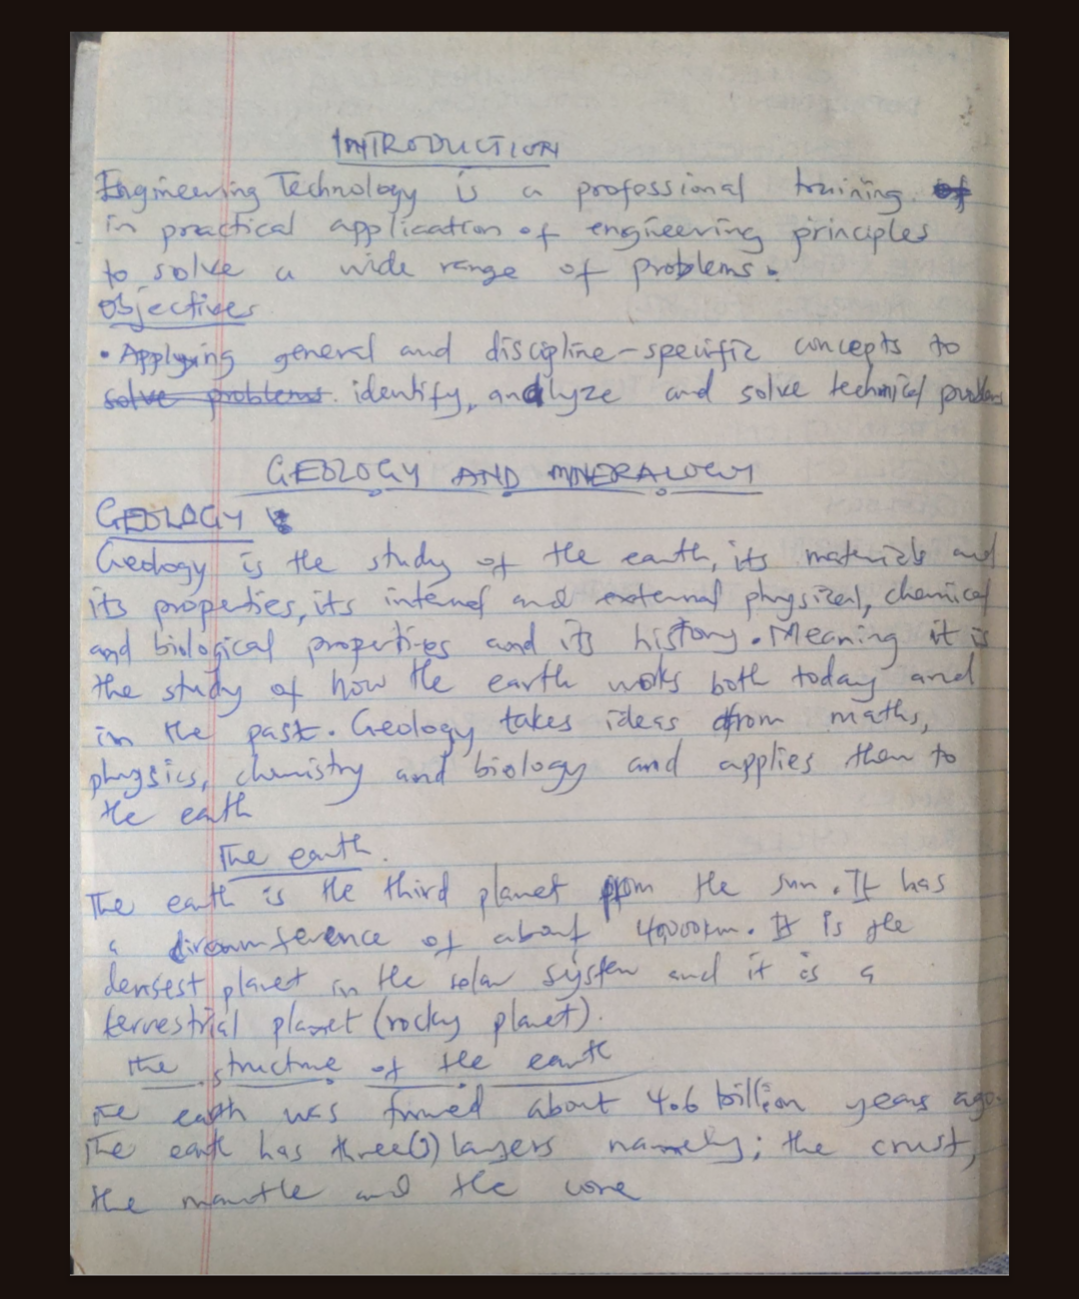 INTRODUCTION
Engineering Technology is a professional training of
in practical application of engineering principles
to solve a wide range of problems.
Objectives
• Applying general and discipline-specific concepts to
solve problems identify, analyze and solve technical problems
GEOLOGY AND MINERALOGY
GEOLOGY
Geology is the study of the earth, its materials and
its properties, its internal and external physical, chemical
and biological properties and its history. Meaning it is
the study of how the earth works both today and
in the past. Geology takes ideas from maths,
physics, chemistry and biology and applies them to
the earth
The earth.
The earth is the third planet from the sun. It has
a circumference of about 40,000km. It is the
densest planet in the solar system and it is a
terrestrial planet (rocky planet).
The structure of the earth
The earth was formed about 4.6 billion years ago.
The earth has three(3) layers namely; the crust,
the mantle and the core